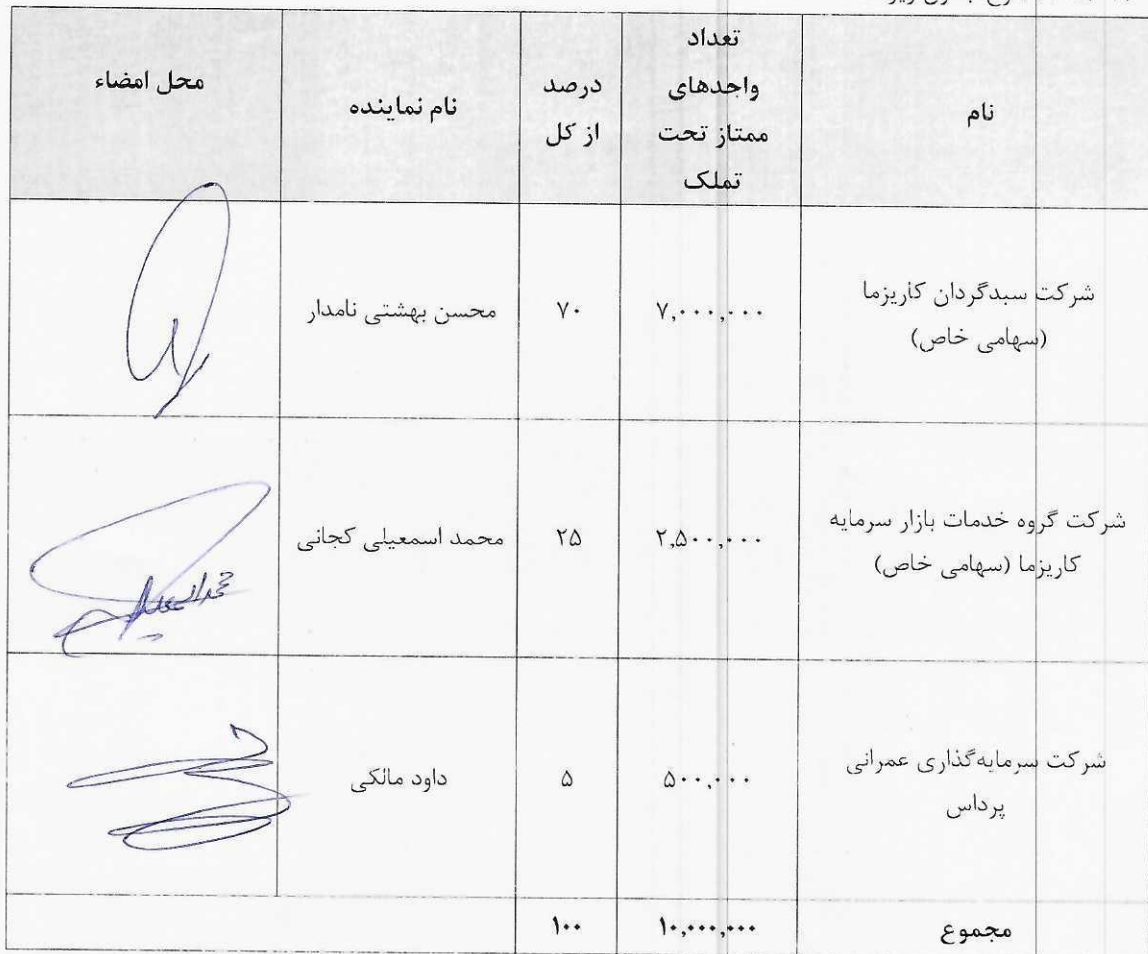 تعداد
واحدهای
ممتاز تحت
تملک
نام
درصد
از کل
نام نماینده
محل امضاء
شرکت سبدگردان کاریزما
(سهامی خاص)
۷,۰۰۰,۰۰۰
۷۰
محسن بهشتی نامدار
شرکت گروه خدمات بازار سرمایه
کاریزما (سهامی خاص)
۲,۵۰۰,۰۰۰
۲۵
محمد اسمعیلی کجانی
شرکت سرمایه‌گذاری عمرانی
پرداس
۵۰۰,۰۰۰
۵
داود مالکی
مجموع
۱۰,۰۰۰,۰۰۰
۱۰۰